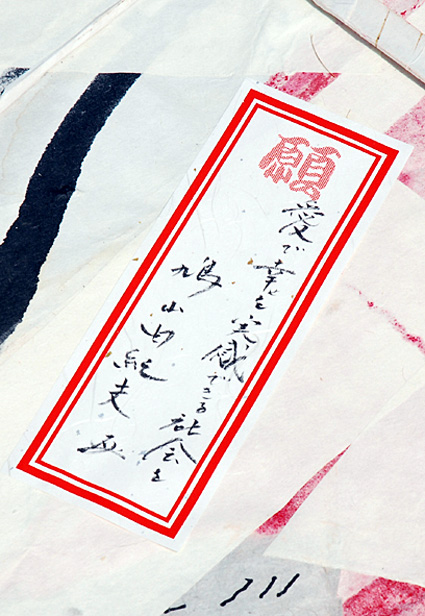 願
愛で幸を実感できる社会を
鳩山由紀夫